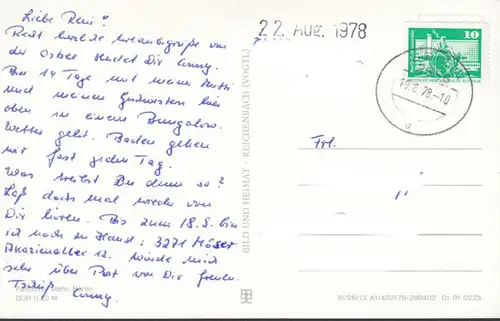 Liebe Reni!
Recht herzliche Urlaubsgrüße von
der Ostsee sendet Dir Conny.
Bin 14 Tage mit meiner Mutti
und meinen Geschwistern hier
oben in einem Bungalow.
Wetter geht. Baden gehen
wir fast jeden Tag.
Was treibst Du denn so?
Laß doch mal wieder von
Dir hören. Bis zum 18.8. bin
ich noch zu Hause: 3271 Möser
Akazienallee 12. Würde mich
sehr über Post von Dir freuen.
Tschüß Conny.
Mohr, Berlin
0,20 M
BILD UND HEIMAT · REICHENBACH (VOGTL)
22. AUG. 1978
10
-8.78-10
a
Frl.
BI/26/13 A1/402/78-280402 01 01 0225